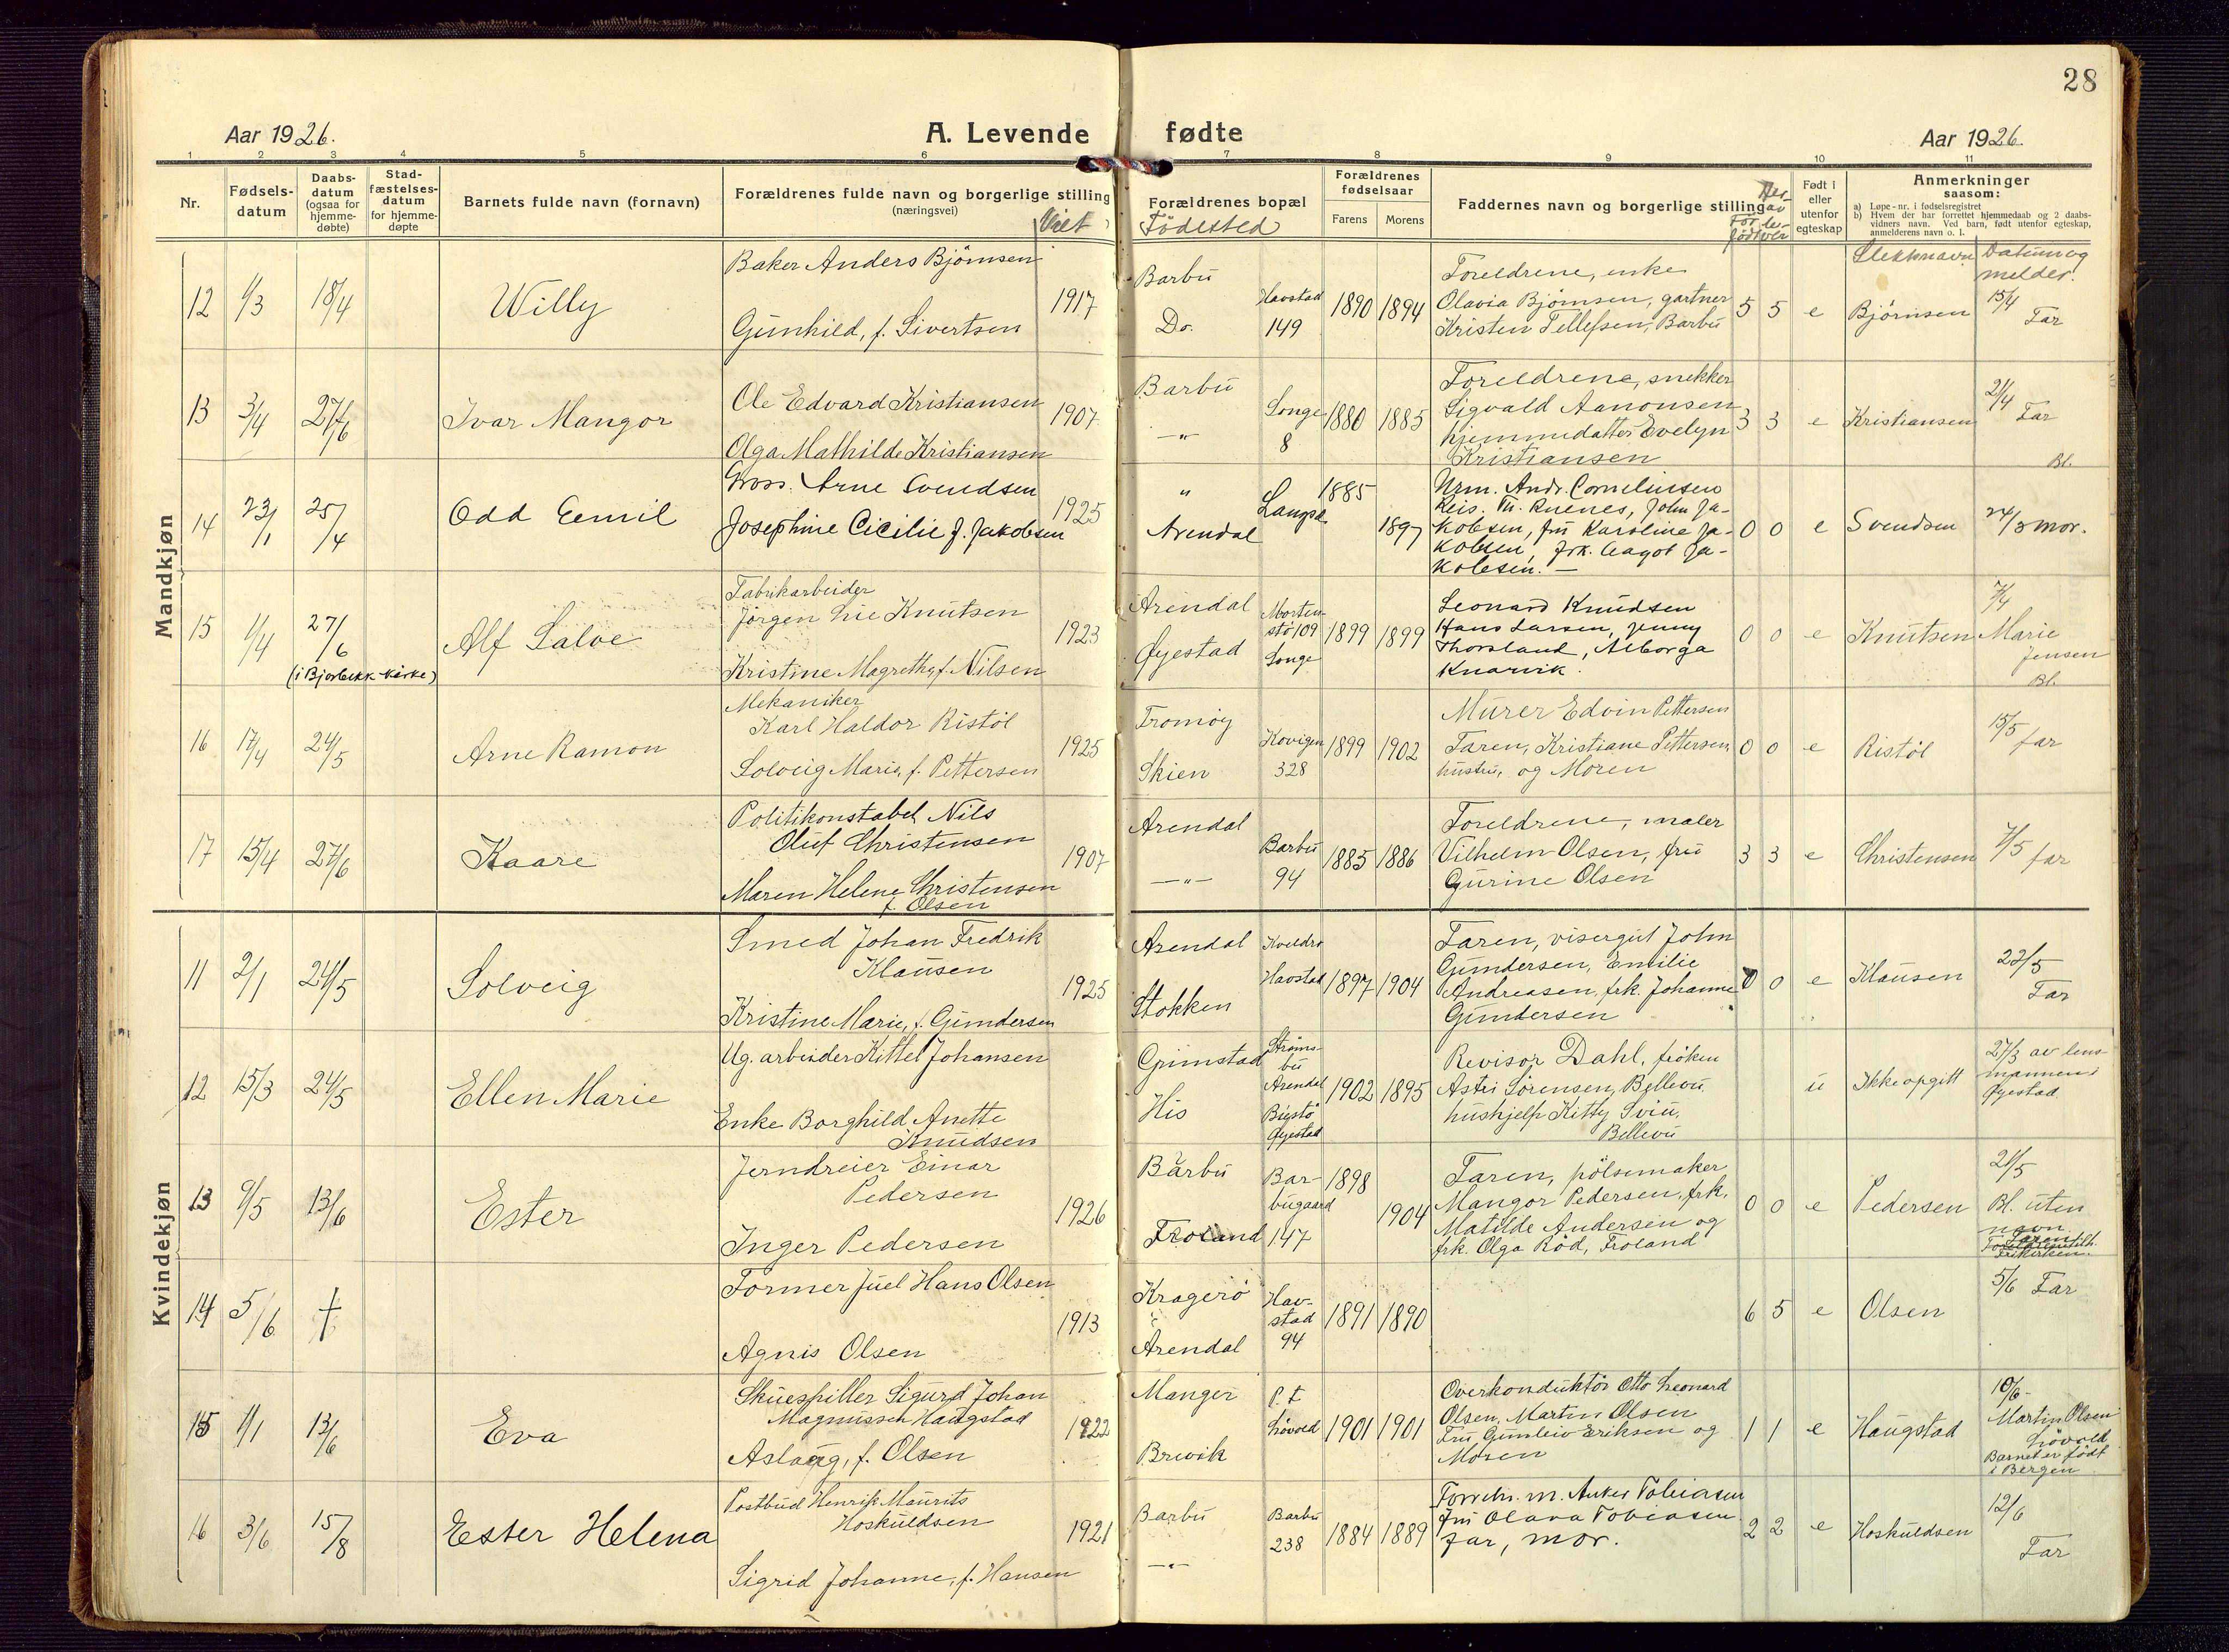 28
Aar 1926.
A. Levende fødte
Aar 1926.
1 2 3 4 5 6 7 8 9 10 11
Nr.
Fødsels-
datum
Daabs-
datum
(ogsaa for
hjemme-
døbte)
Stad-
fæstelses-
datum
for hjemme-
døpte
Barnets fulde navn (fornavn)
Forældrenes fulde navn og borgerlige stilling
(næringsvei)
Viet
Forældrenes bopæl
Födested
Forældrenes
fødselsaar
Farens Morens
Faddernes navn og borgerlige stilling
Født i
eller
utenfor
egteskap
Anmerkninger
saasom:
a) Løpe-nr. i fødselsregistret
b) Hvem der har forrettet hjemmedaab og 2 daabs-
vidners navn. Ved barn, født utenfor egteskap,
anmelderens navn o. l.
Slektsnavn Datum og
melder.
Mandkjøn
12 1/3 18/4 Willy
Baker Anders Bjørnsen
Gunhild, f. Sivertsen
1917
Barbu
Do.
Havstad
149
1890 1894
Foreldrene, enke
Olavia Bjørnsen, gartner
Kristen Tellefsen, Barbu
5 5 e Bjørnsen
15/4
Far
13 3/4 27/6 Ivar Mangor
Ole Edvard Kristiansen
Olga Mathilde Kristiansen
1907
Barbu
—"—
Songe
8
1880 1885
Foreldrene, snekker
Sigvald Aanonsen
hjemmedatter Evelyn
Kristiansen
3 3 e Kristiansen
21/4
Far
Bl.
14 23/1 25/4 Odd Eemil
Gross. Arne Svendsen
Josephine Cicilie f. Jakobsen
1925
"
Arendal
Langsæ
1885
1897
Urm. Andr. Corneliussen
Reis. Th. Ruenes, John Ja-
kobsen, fru Karoline Ja-
kobsen, frk. Aagot Ja-
kobsen. —
0 0 e Svendsen 24/3 mor.
15 1/4 27/6
(i Bjorbekk kirke)
Alf Salve
Fabrikarbeider
Jörgen Lie Knutsen
Kristine Magrethe, f. Nilsen
1923
Arendal
Øyestad
Morten-
stö 109
Songe
1899 1899
Leonard Knudsen
Hans Larsen, Jenny
Thorsland, Alborga
Knarvik.
0 0 e Knutsen
7/4
Marie
Jensen
Bl.
16 17/4 24/5 Arne Ramon
Mekaniker
Karl Haldor Ristöl
Solveig Marie, f. Pettersen
1925
Tromöy
Skien
Kovigen
328
1899 1902
Murer Edvin Pettersen
Faren, Kristiane Pettersen,
hustru, og Moren
0 0 e Ristöl
15/5
far
17 15/4 27/6 Kaare
Politikonstabel Nils
Oluf Christensen
Maren Helene Christensen
f. Olsen
1907
Arendal
—"—
Barbu
94
1885 1886
Foreldrene, maler
Vilhelm Olsen, fru
Gurine Olsen
3 3 e Christensen
7/5 far
Kvindekjøn
11 2/1 24/5 Solveig
Smed Johan Fredrik
Klausen
Kristine Marie, f. Gundersen
1925
Arendal
Stokken
Havstad
1897 1904
Faren, visergut John
Gundersen, Emilie
Andreasen, frk. Johanne
Gundersen
0 0 e Klausen
22/5
Far
12 15/3 24/5 Ellen Marie
Ug. arbeider Kittel Johansen
Enke Borghild Anette
Knudsen
Grimstad
His
Ströms-
bu
Arendal
Biestö
Øyestad
1902 1895
Revisor Dahl, fröken
Astri Sörensen, Bellevu.
hushjelp Kitty Sviu,
Bellevu
u Ikke opgitt
27/3 av lens-
mannen i
Øyestad.
13 9/5 13/6 Ester
Jerndreier Einar
Pedersen
Inger Pedersen
1926
Barbu
Froland
Bar-
bugaard
147
1898
1904
Faren, pölsemaker
Mangor Pedersen, frk.
Matilde Andersen og
frk. Olga Röd, Froland
0 0 e Pedersen
21/5
Bl. uten
navn.
14 5/6 †
Former Juel Hans Olsen
Agnis Olsen
1913
Kragerö
Arendal
Hav-
stad
94
1891 1890
6 5 e Olsen
5/6 Far
15 1/1 13/6 Eva
Skuespiller Sigurd Johan
Magnussen Haugstad
Aslaug, f. Olsen
1922
Manger
Brevik
P. t.
Lövold
1901 1901
Overkonduktör Otto Leonard
Olsen, Martin Olsen
Fru Gunleiv Eriksen og
Moren
1 1 e Haugstad
10/6
Martin Olsen
Lövold
Barnet er födt
i Bergen
16 3/6 15/8 Ester Helena
Postbud Henrik Maurits
Hoskuldsen
Sigrid Johanne, f. Hansen
1921
Barbu
—"—
Barbu
238
1884 1889
Forretn. m. Anker Tobiasen
fru Olava Tobiasen
far, mor.
2 2 e Hoskuldsen
12/6
Far